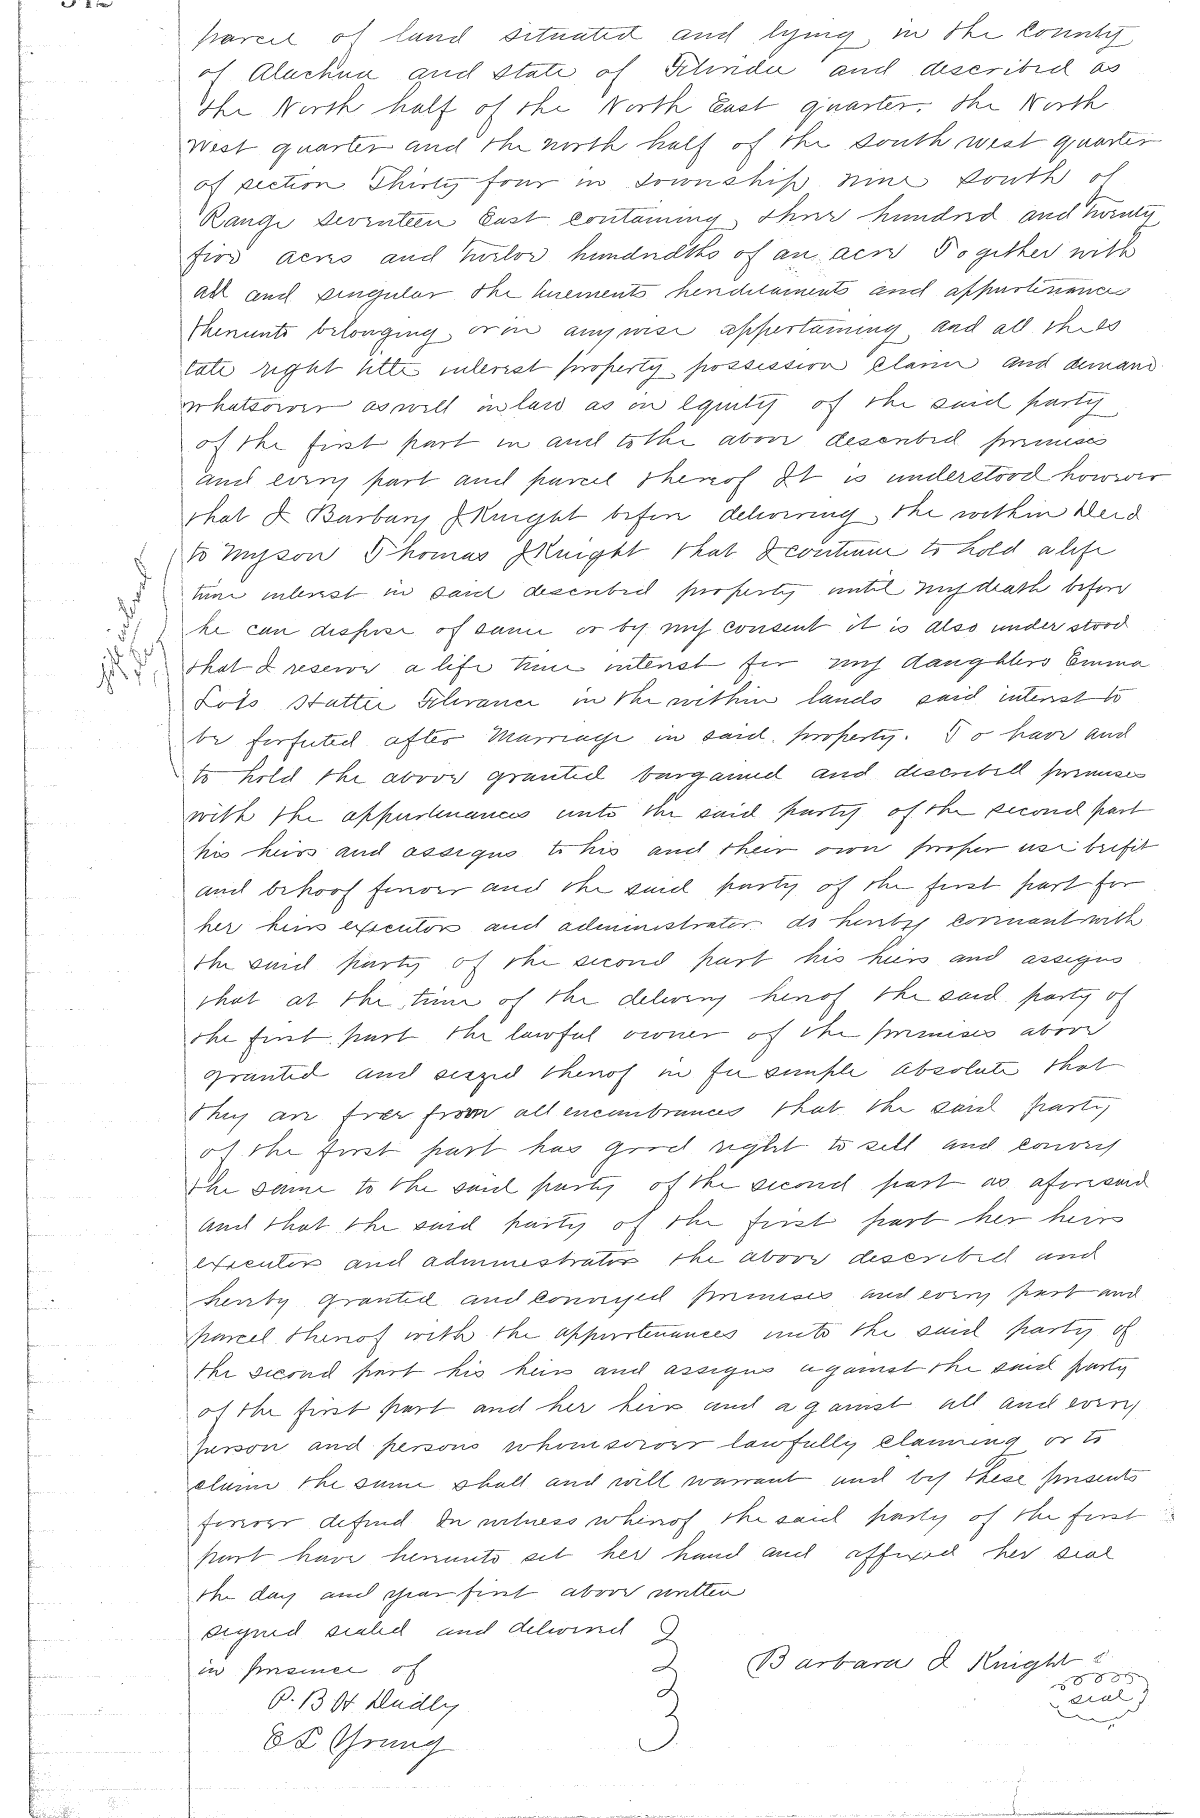 parcel of land situated and lying in the County
of Alachua and state of Florida and described as
the North half of the North East quarter. the North
West quarter and the north half of the south west quarter
of section Thirty four in township nine south of
Range Seventeen East containing three hundred and twenty
five acres and twelve hundredths of an acre Together with
all and singular the tenements hereditaments and appurtenances
thereunto belonging or in anywise appertaining and all the es
tate right title interest property possession claim and demand
whatsoever as well in law as in equity of the said party
of the first part in and to the above described premises
and every part and parcel thereof It is understood however
that I Barbary J Knight before delivering the within Deed
to my son Thomas J Knight that I continue to hold a life
time interest in said described property until my death before
he can dispose of same or by my consent it is also understood
that I reserve a life time interest for my daughters Emma
Lots Hattie Florance in the within lands said interest to
be forfuted after Marriage in said property. To have and
to hold the above granted bargained and described premises
with the appurtenances unto the said party of the second part
his heirs and assigns to his and their own proper use benefit
and behoof forever and the said party of the first part for
her heirs executors and administrator do hereby covenant with
the said party of the second part his heirs and assigns
that at the time of the delivery hereof the said party of
the first part the lawful owner of the premises above
granted and seized thereof in fee simple absolute that
they are free from all encumbrances that the said party
of the first part has good right to sell and convey
the same to the said party of the second part as aforesaid
and that the said party of the first part her heirs
executors and administrators the above described and
hereby granted and conveyed premises and every part and
parcel thereof with the appurtenances unto the said party of
the second part his heirs and assigns against the said party
of the first part and her heirs and against all and every
person and persons whomsoever lawfully claiming or to
claim the same shall and will warrant and by these presents
forever defend In witness whereof the said party of the first
part have hereunto set her hand and affixed her seal
the day and year first above written
signed sealed and delivered
in presence of
Barbara J Knight
seal
P. B H Dudly
E P Young